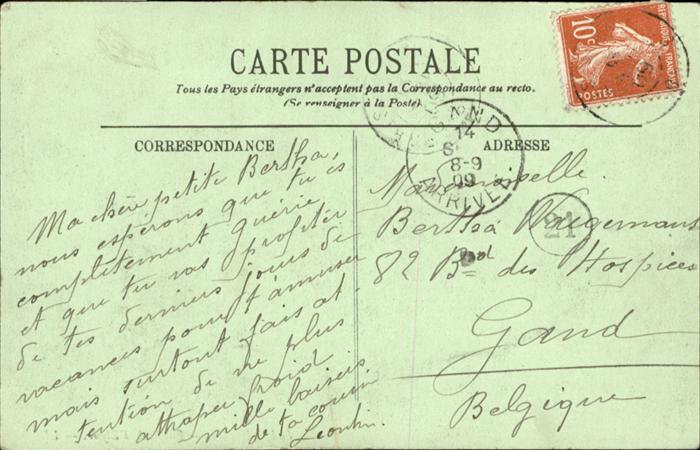 CARTE POSTALE
Tous les Pays étrangers n'acceptent pas la Correspondance au recto.
(Se renseigner à la Poste)
CORRESPONDANCE
Ma chère petite Bertha,
nous espérons que tu es
complètement guérie
et que tu vas profiter
de tes derniers jours de
vacances pour t'amuser
mais surtout fais at-
tention de ne plus
attraper froid
mille baisers
de ta cousine
Leontin.
ADRESSE
Mademoiselle
Bertha
82 Bd des Hospices
Gand
Belgique
10c
REPUBLIQUE FRANÇAISE
POSTES
14
8-9
09
ARRIVEE
21